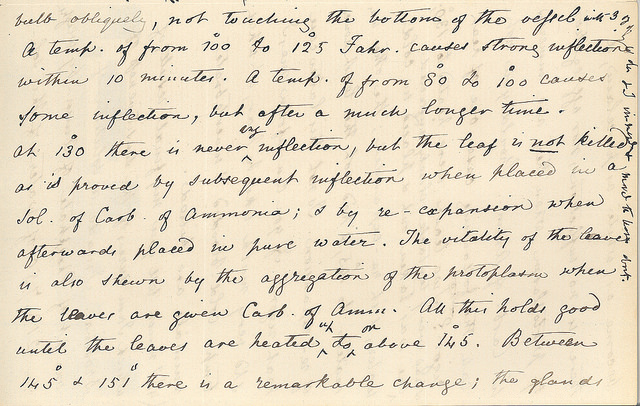 bulb obliquely, not touching the bottom of the vessel with 3
A temp. of from 100° to 125° Fahr. causes strong inflection
within 10 minutes. A temp. of from 80° to 100° causes
some inflection, but after a much longer time.
At 130° there is never any inflection, but the leaf is not killed
as is proved by subsequent inflection when placed in a
Sol. of Carb. of Ammonia; & by re-expansion when
afterwards placed in pure water. The vitality of the leaves
is also shewn by the aggregation of the protoplasm when
the leaves are given Carb. of Amm. All this holds good
until the leaves are heated up to or above 145°. Between
145° & 151° there is a remarkable change; the glands